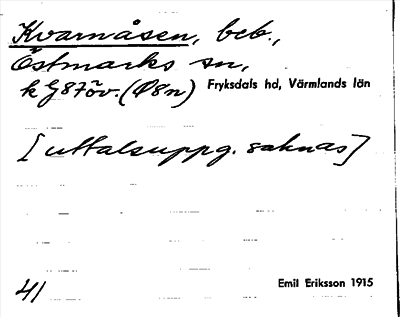 Kvarnåsen, beb.,
Östmarks sn,
k G87öv. (Ø8n) Fryksdals hd, Värmlands län
[uttalsuppg. saknas]
41 Emil Eriksson 1915